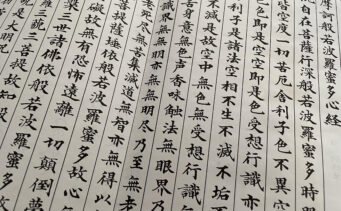 摩訶般若波羅蜜多心経
自在菩薩行深般若波羅蜜多時
皆空度一切苦厄舎利子色不異空
色即是空空即是色受想行識亦
利子是諸法空相不生不滅不垢
不減是故空中無色無受想行識
舌身意無色声香味触法無眼界乃
識界無無明亦無無明尽乃至無
老死尽無苦集滅道無智亦無得以
菩提薩埵依般若波羅蜜多故心
礙故無有恐怖遠離一切顛倒夢
三世諸佛依般若波羅蜜多故
三藐三菩提故知般